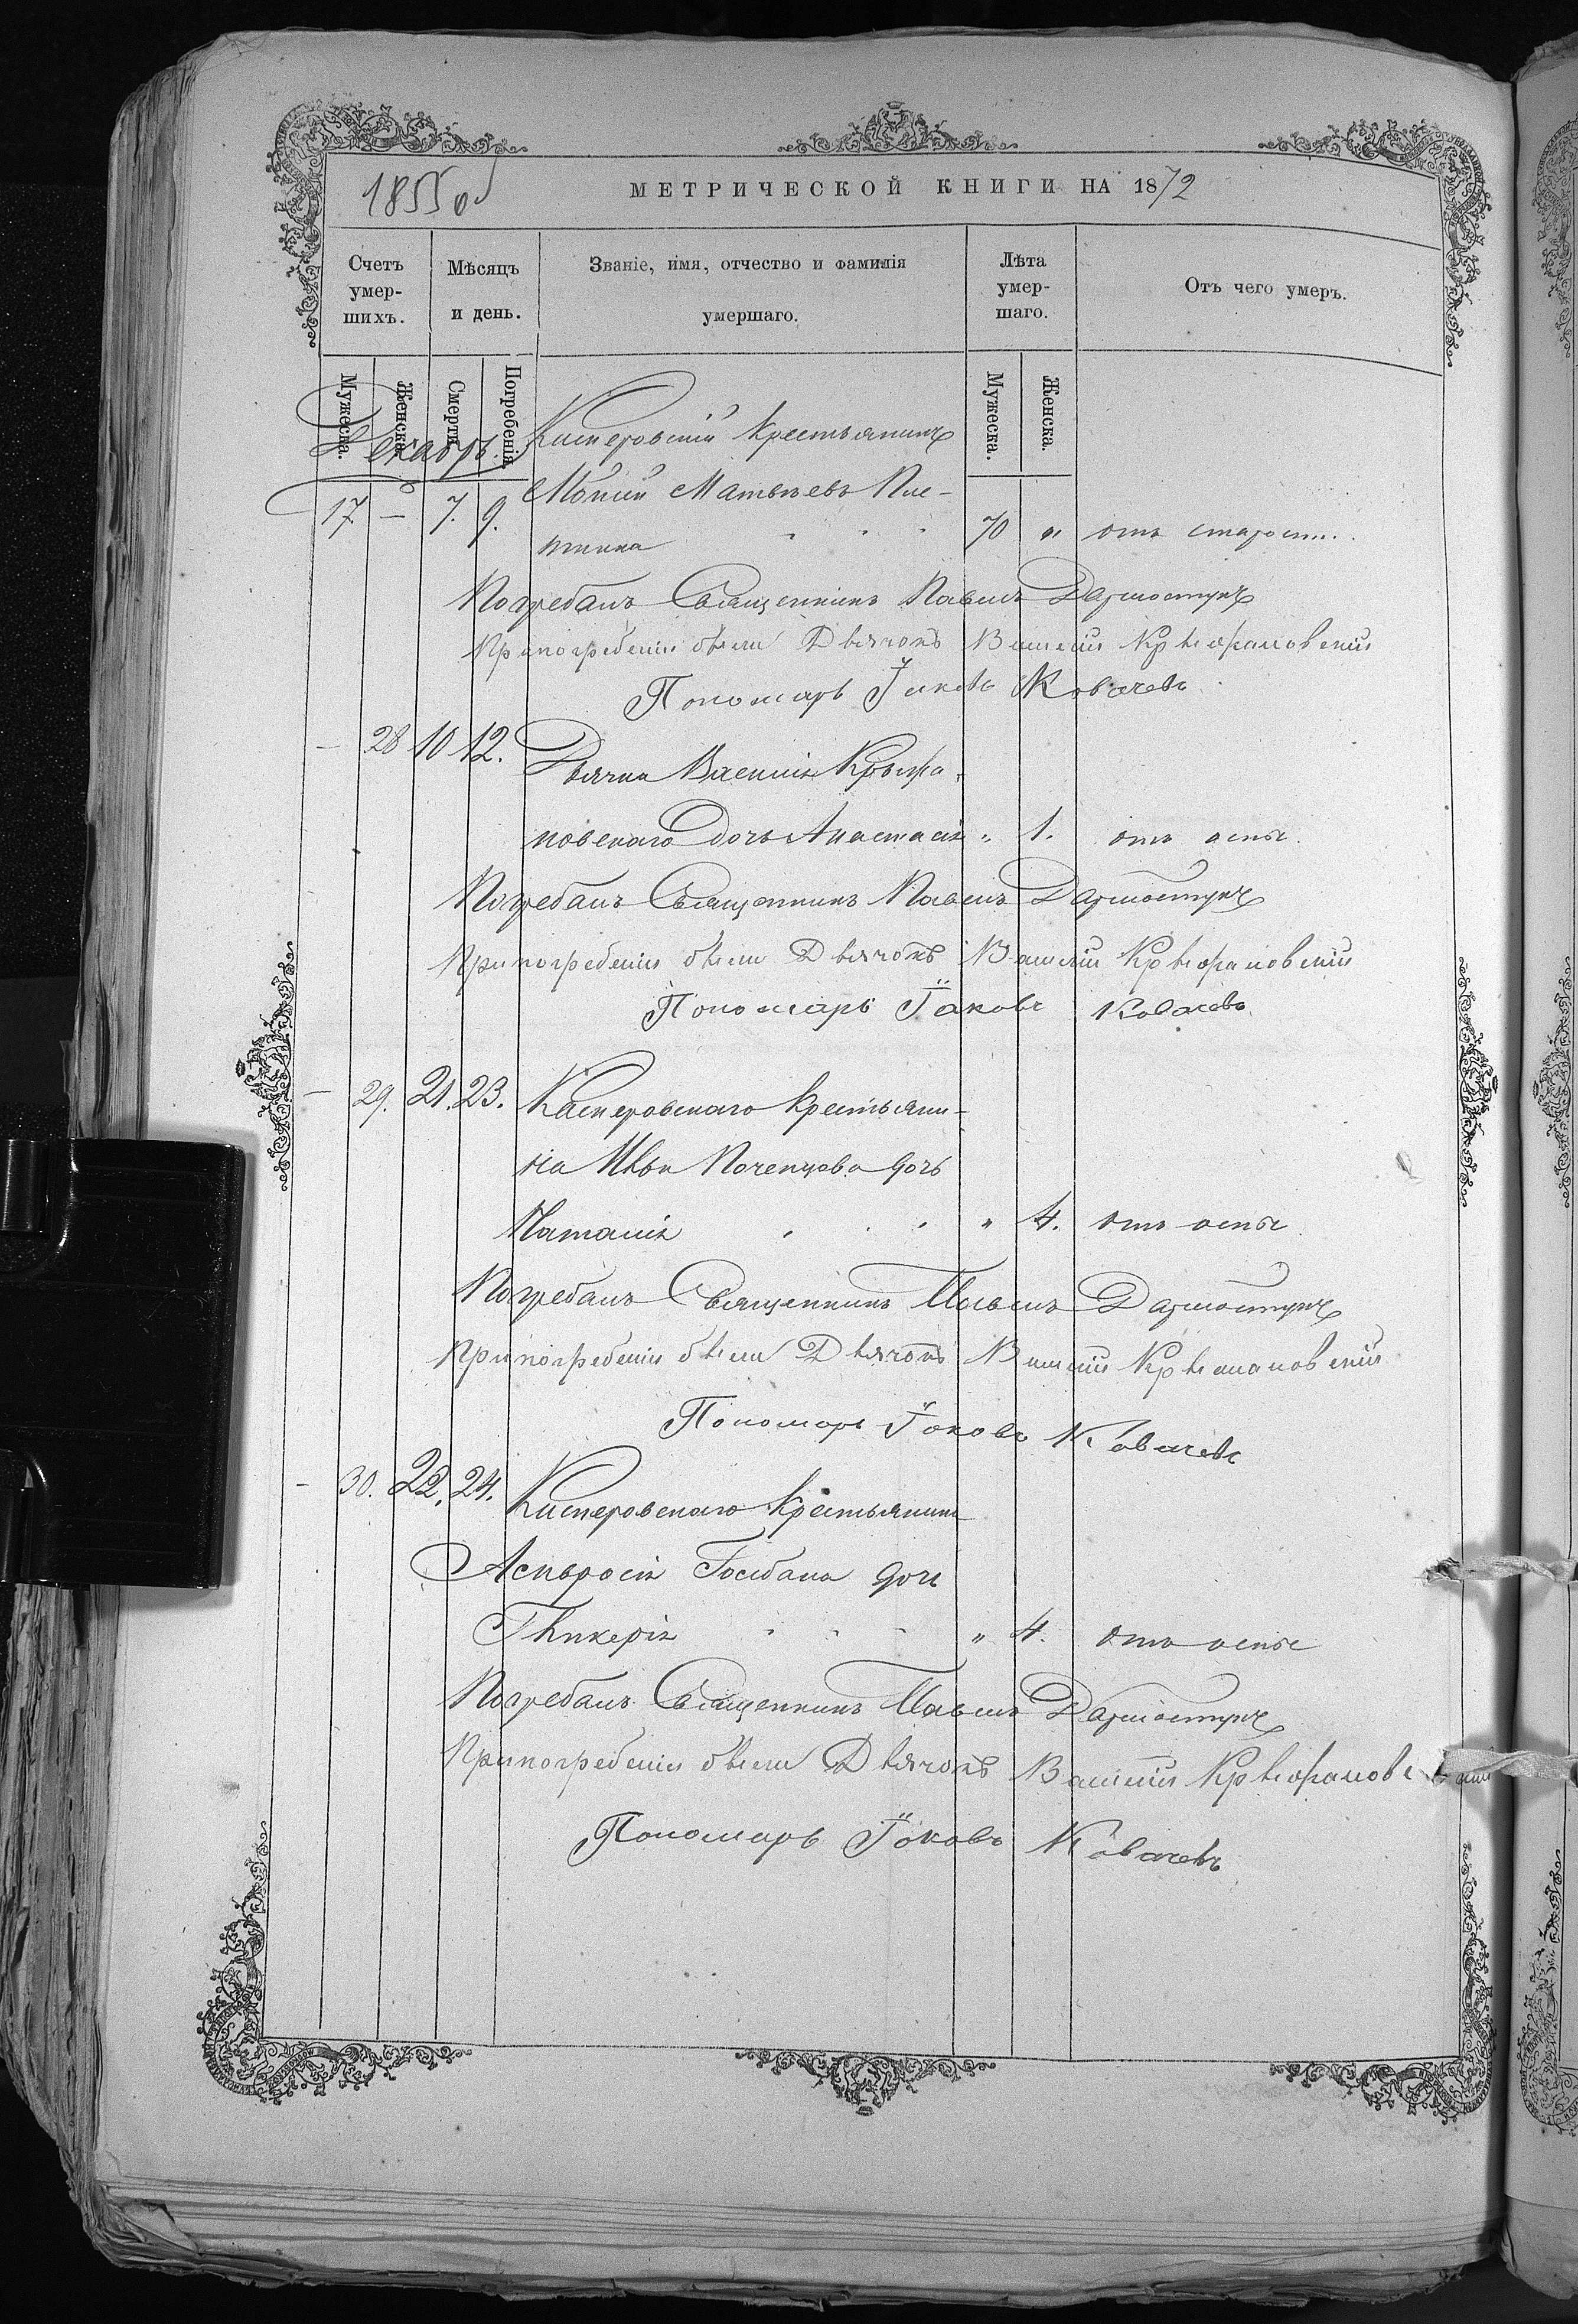 1855 об
МЕТРИЧЕСКОЙ КНИГИ НА 1872
Счетъ умер-шихъ.
Мѣсяцъ и день.
Званіе, имя, отчество и фамилія умершаго.
Лѣта умер-шаго.
Отъ чего умеръ.
Мужеска. Женска. Смерти. Погребенія. Мужеска. Женска.
Декабрь.
Касперовскій Крестьянинъ
17 — 7. 9. Мокій Матвѣевъ
70 " отъ старости.
Погребалъ Священникъ Павелъ Даржостукъ
При погребеніи были Дьячокъ Василій Крыжановскій
Пономарь Іаковъ Ковачевъ
— 28 10 12. Дьячка Василія Крыжа-
новскаго дочь Анастасія " 1. отъ оспы.
Погребалъ Священникъ Павелъ Даржостукъ
При погребеніи были Дьячокъ Василій Крыжановскій
Пономарь Іаковъ Ковачевъ
— 29. 21. 23. Касперовскаго Крестьяни-
на Иван Поченцова дочь
Наталія " 4. отъ оспы
Погребалъ Священникъ Павелъ Даржостукъ
При погребеніи были Дьячокъ Василій Крыжановскій
Пономарь Іаковъ Ковачевъ
— 30. 22. 24. Касперовскаго Крестьянина
Амвросія дочь
Гликерія " 4. отъ оспы
Погребалъ Священникъ Павелъ Даржостукъ
При погребеніи были Дьячокъ Василій Крыжановскій
Пономарь Іаковъ Ковачевъ